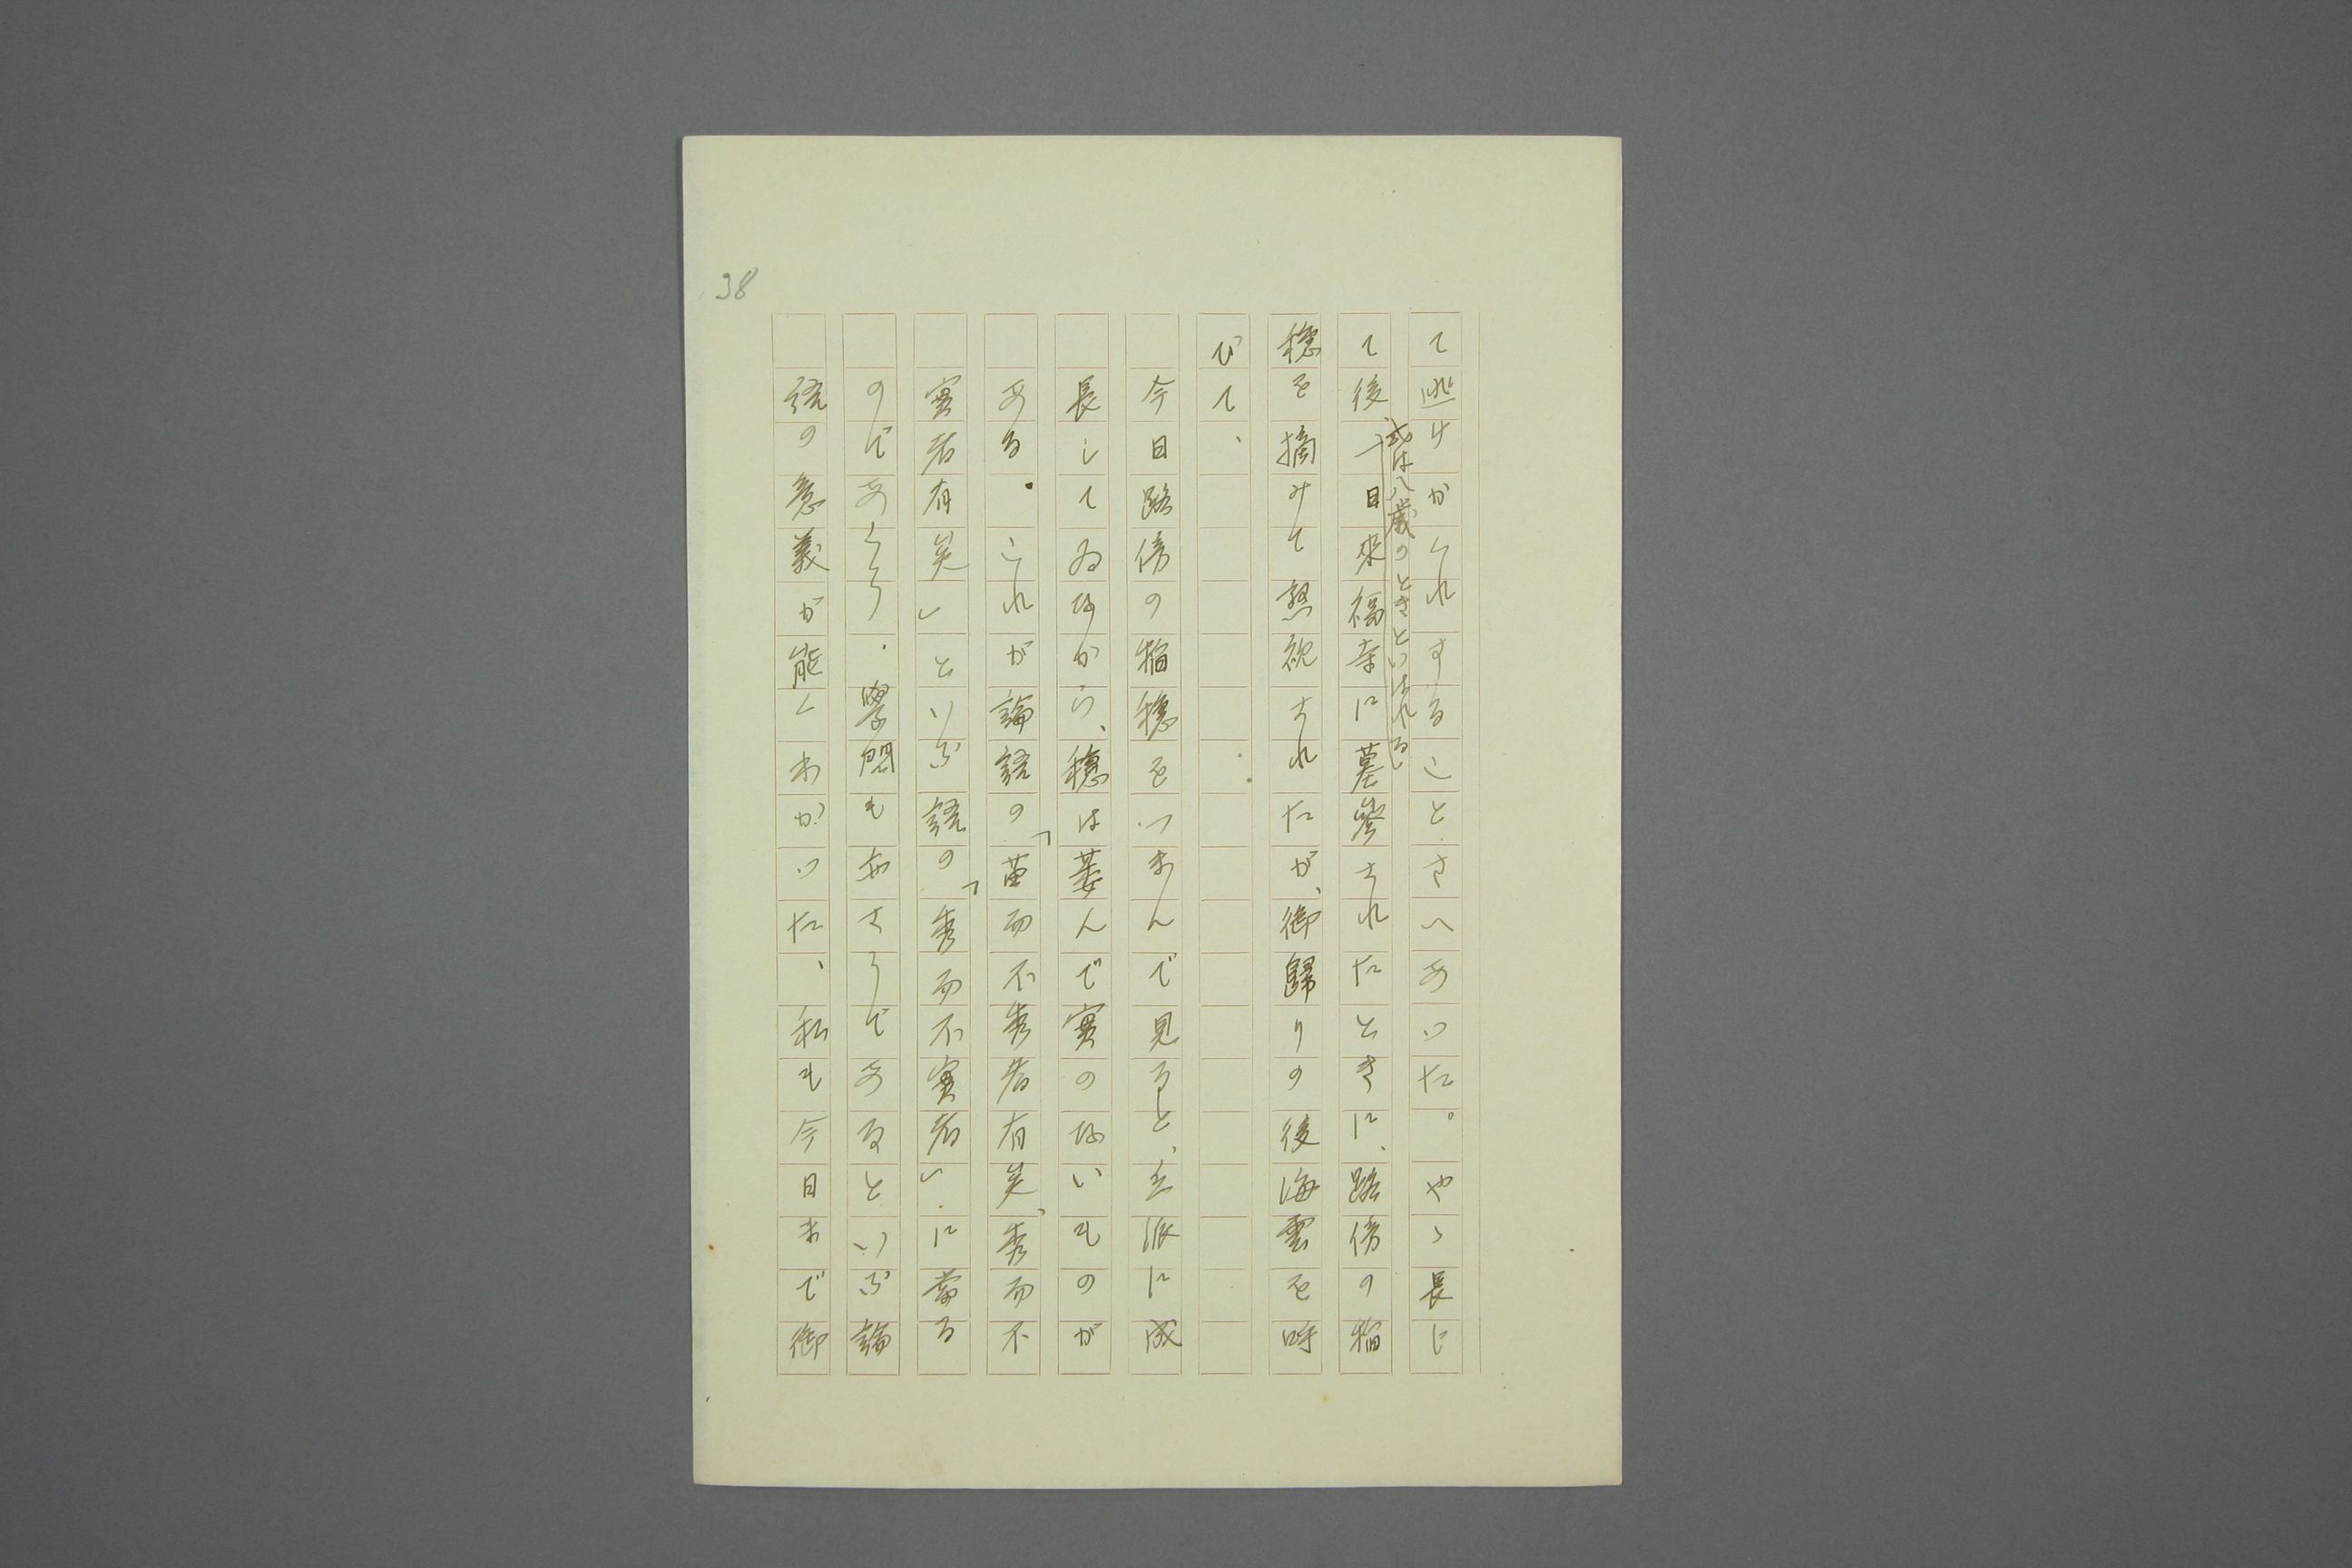 38
て逃げかくれすることさへあつた。やゝ長じ
或は八歳のときといはれる
て後、一日来福寺に墓参されたときに、路傍の稲
穂を摘みて熟視されたが、御歸りの後海雲を呼
びて、
今日路傍の稲穂をつまんで見ると、立派に成
長してゐながら、穂は萎んで實のないものが
ある。これが論語の「苗而不秀者有矣、秀而不
實者有矣」といふ語の「秀而不實者」に當る
のであらう。學問も亦さうであるといふ論
語の意義が能くわかつた、私も今日まで御